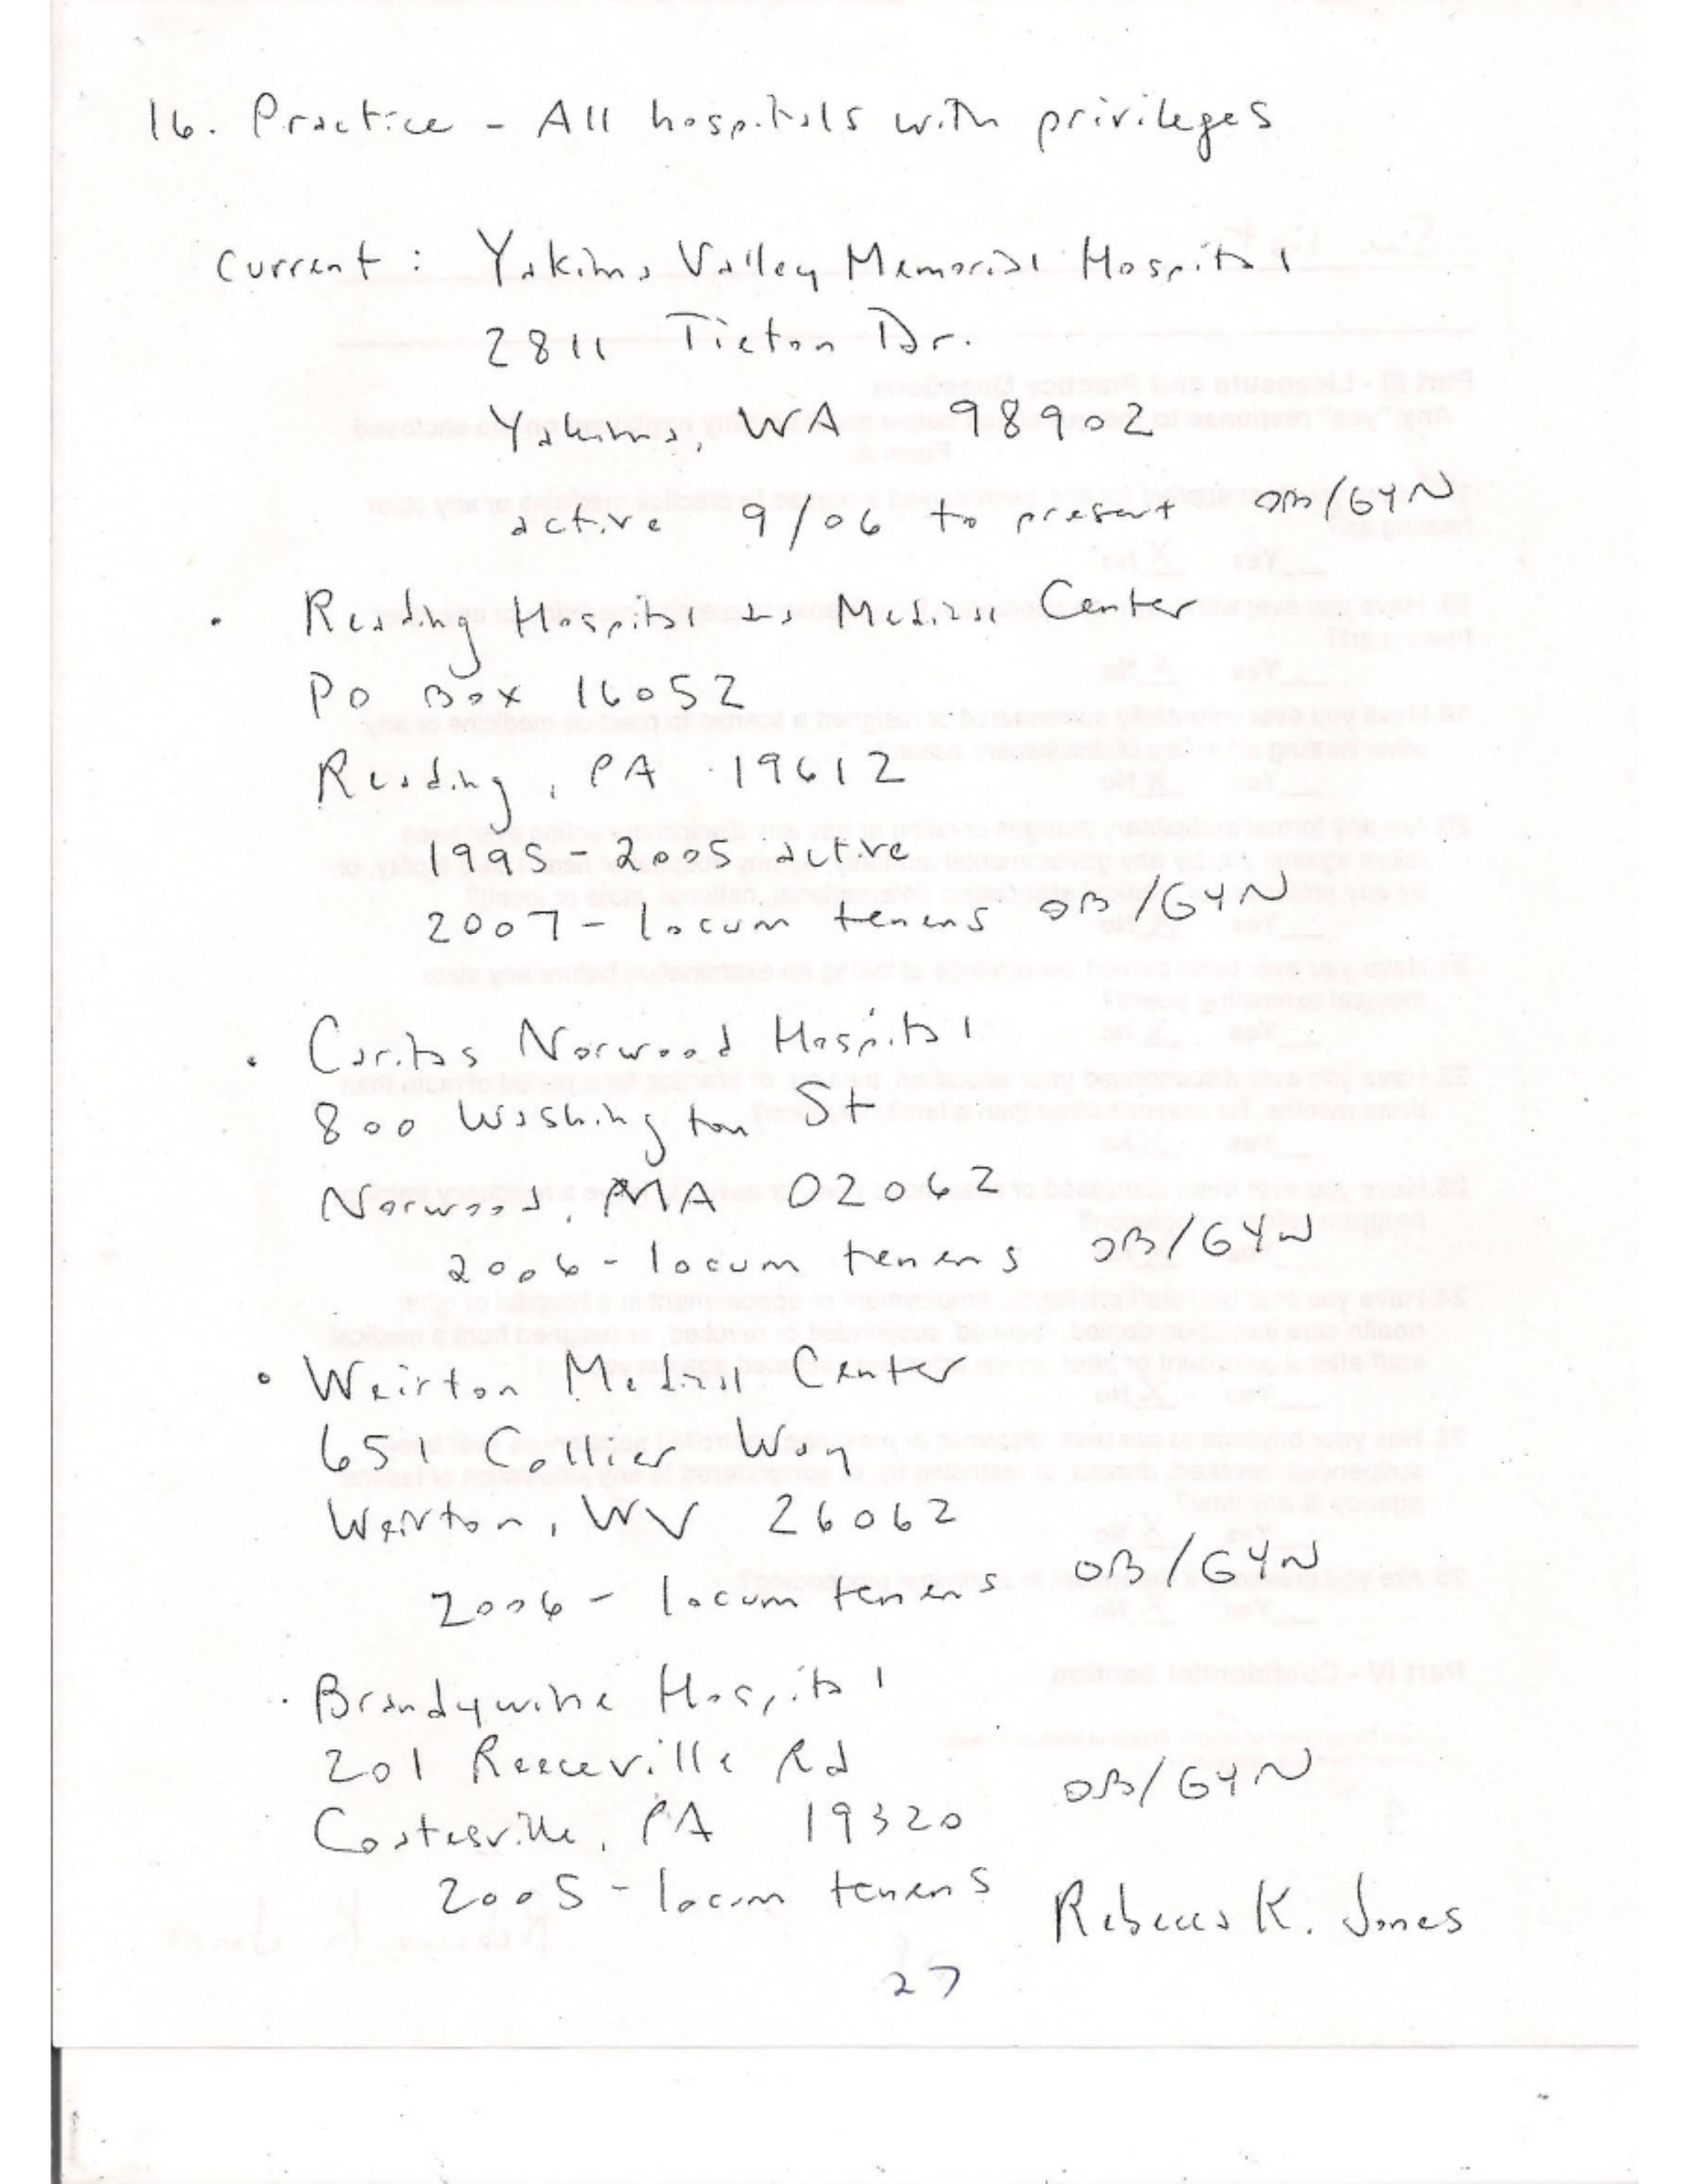 16. Practice - All hospitals with privileges
Current : Yakima Valley Memorial Hospital
2811 Tieton Dr.
Yakima, WA 98902
active 9/06 to present OB/GYN
. Reading Hospital and Medical Center
PO Box 16052
Reading, PA 19612
1995 - 2005 active
2007 - locum tenens OB/GYN
. Caritas Norwood Hospital
800 Washington St
Norwood, MA 02062
2006 - locum tenens OB/GYN
. Weirton Medical Center
651 Collier Way
Weirton, WV 26062
2006 - locum tenens OB/GYN
. Brandywine Hospital
201 Reeceville Rd
OB/GYN
Coatesville, PA 19320
2005 - locum tenens
Rebecca K. Jones
27